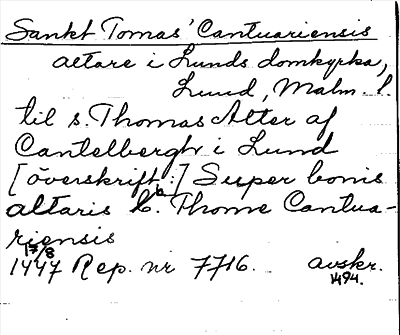 Sankt Tomas' Cantuariensis
altare i Lunds domkyrka,
Lund, Malm. l.
til s. Thomas Alter af
Cantelbergh i Lund
[överskrift:] Super bonis
altaris b. Thome Cantua-
riensis
17/8
1447 Rep. nr 7716. avskr.
1494.